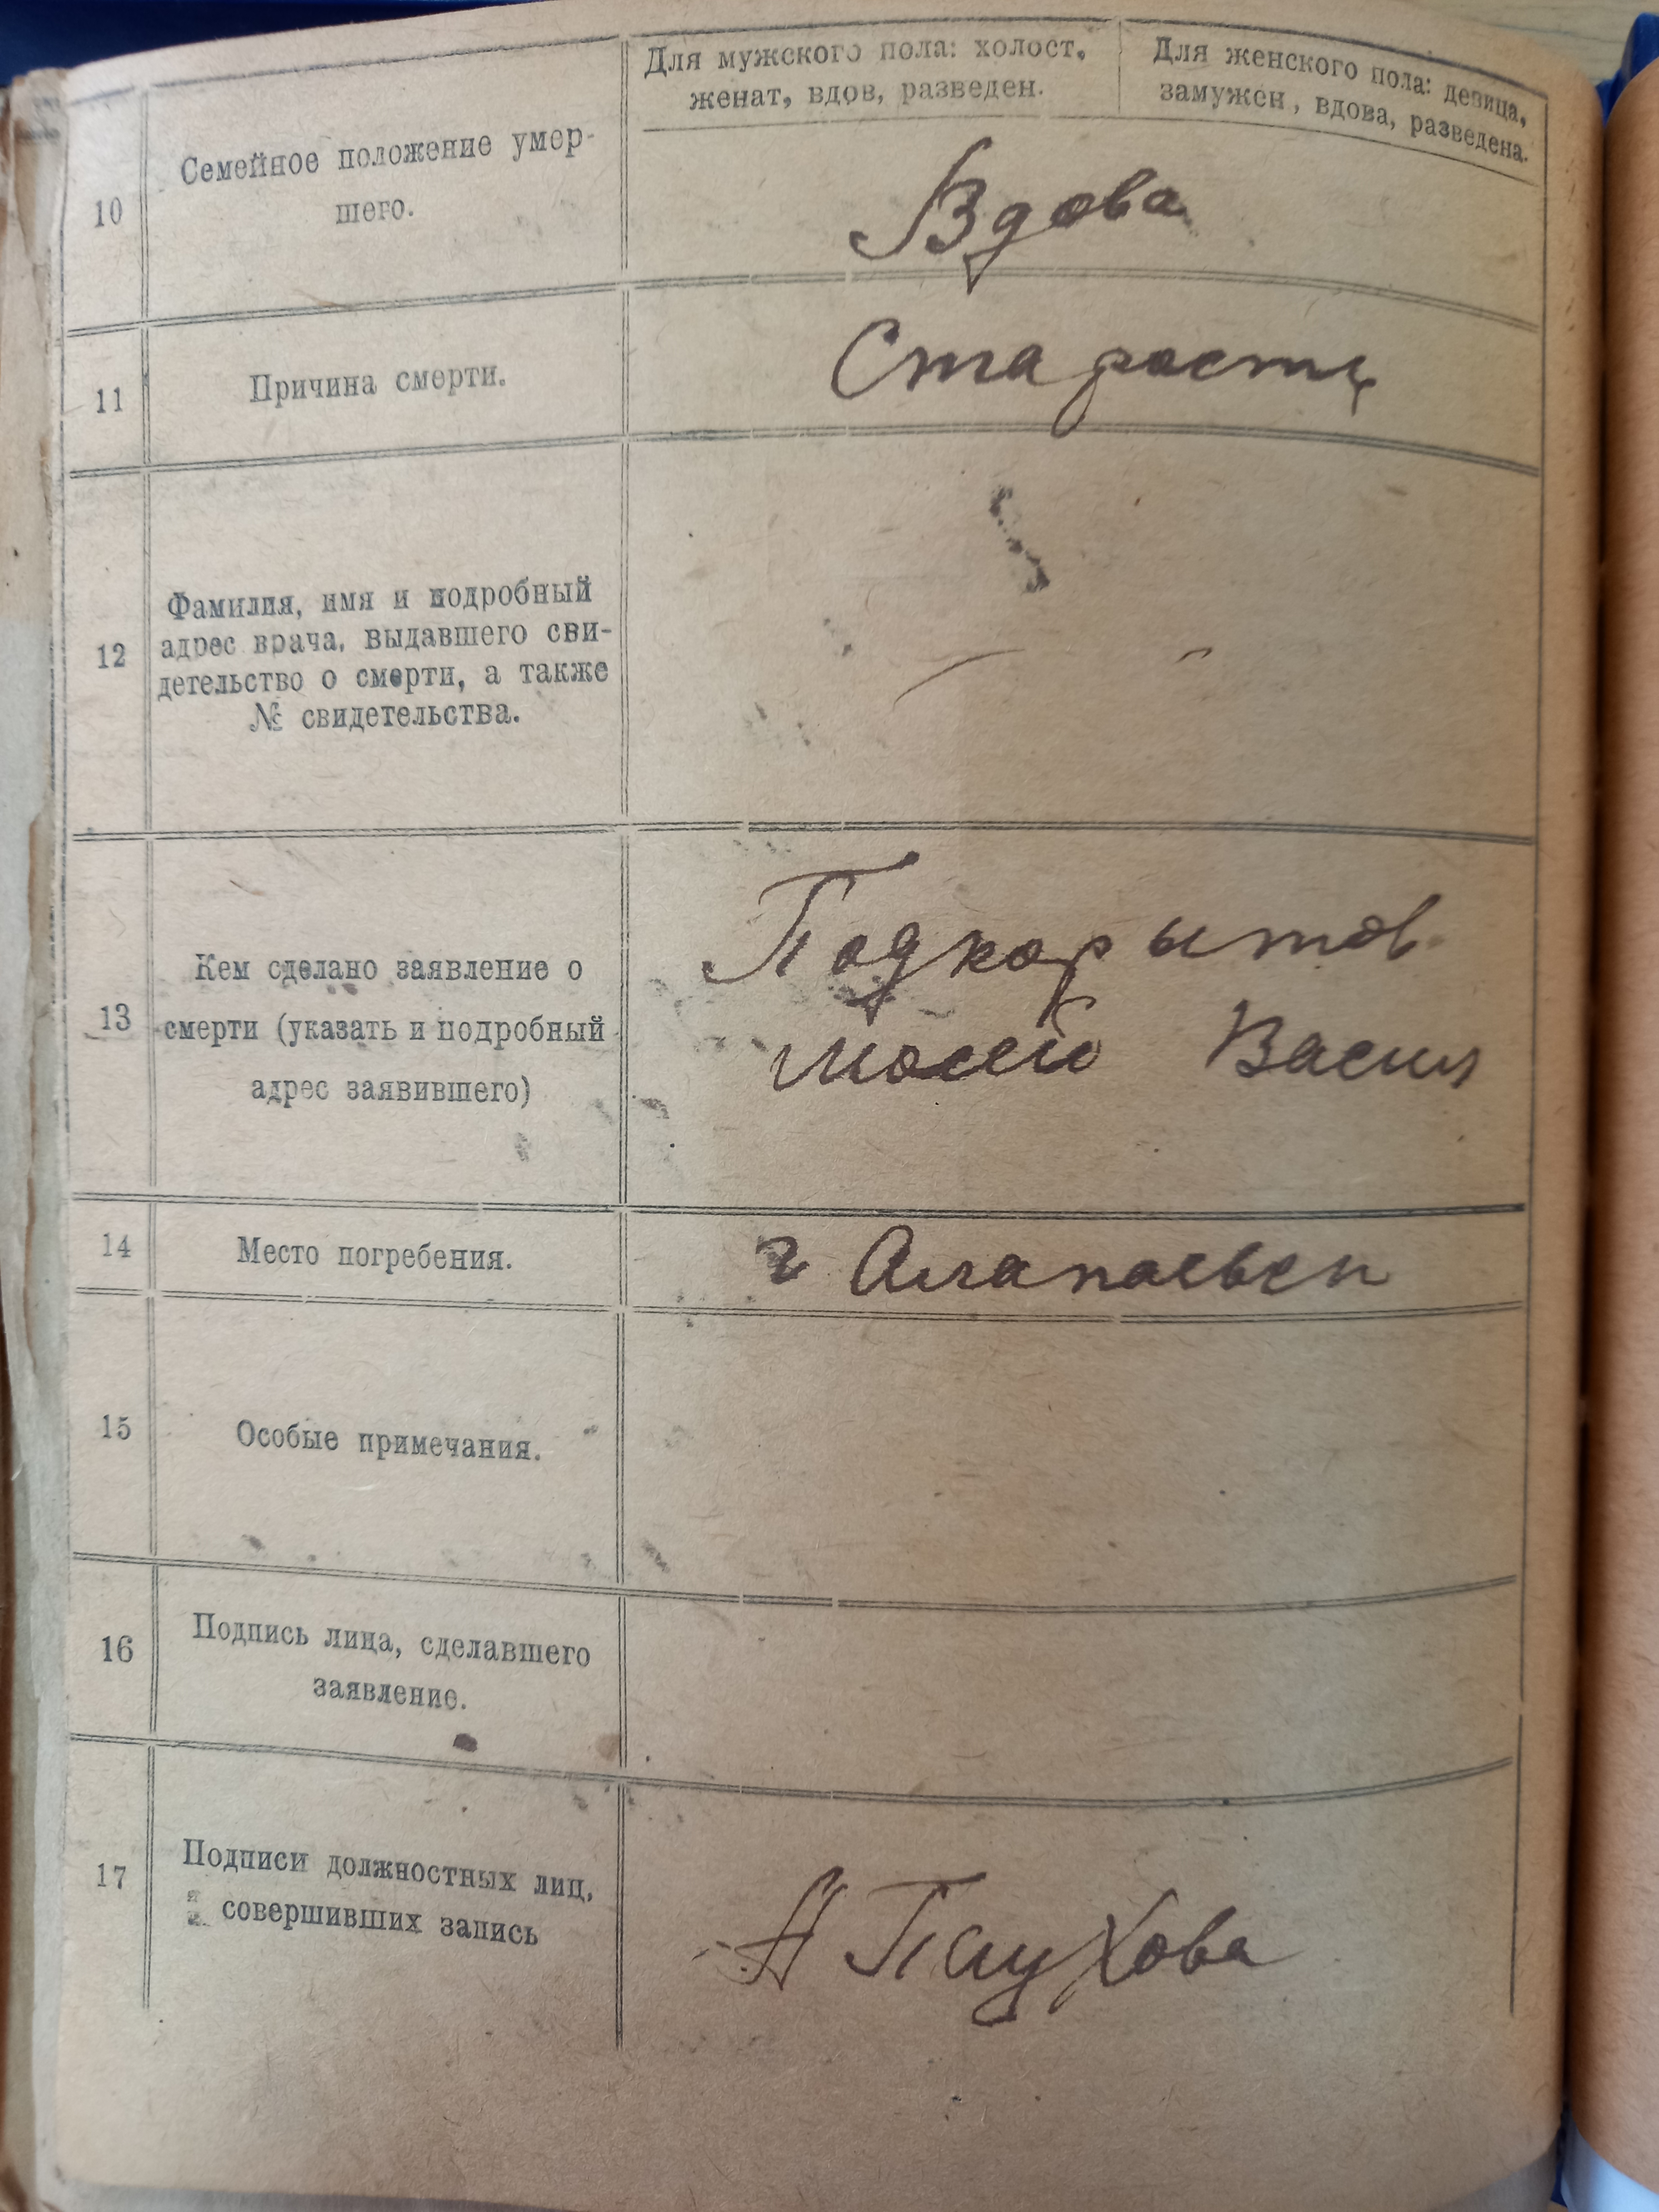 Для мужского пола: холост,
женат, вдов, разведен.
Для женского пола: девица,
замужен, вдова, разведена.
10
Семейное положение умер-
шего.
Вдова
11
Причина смерти.
Старость
12
Фамилия, имя и подробный
адрес врача, выдавшего сви-
детельство о смерти, а также
№ свидетельства.
13
Кем сделано заявление о
смерти (указать и подробный
адрес заявившего)
Подкорытов
Мосей Васил
14
Место погребения.
г Алапаевск
15
Особые примечания.
16
Подпись лица, сделавшего
заявление.
17
Подписи должностных лиц,
совершивших запись
А Паухова